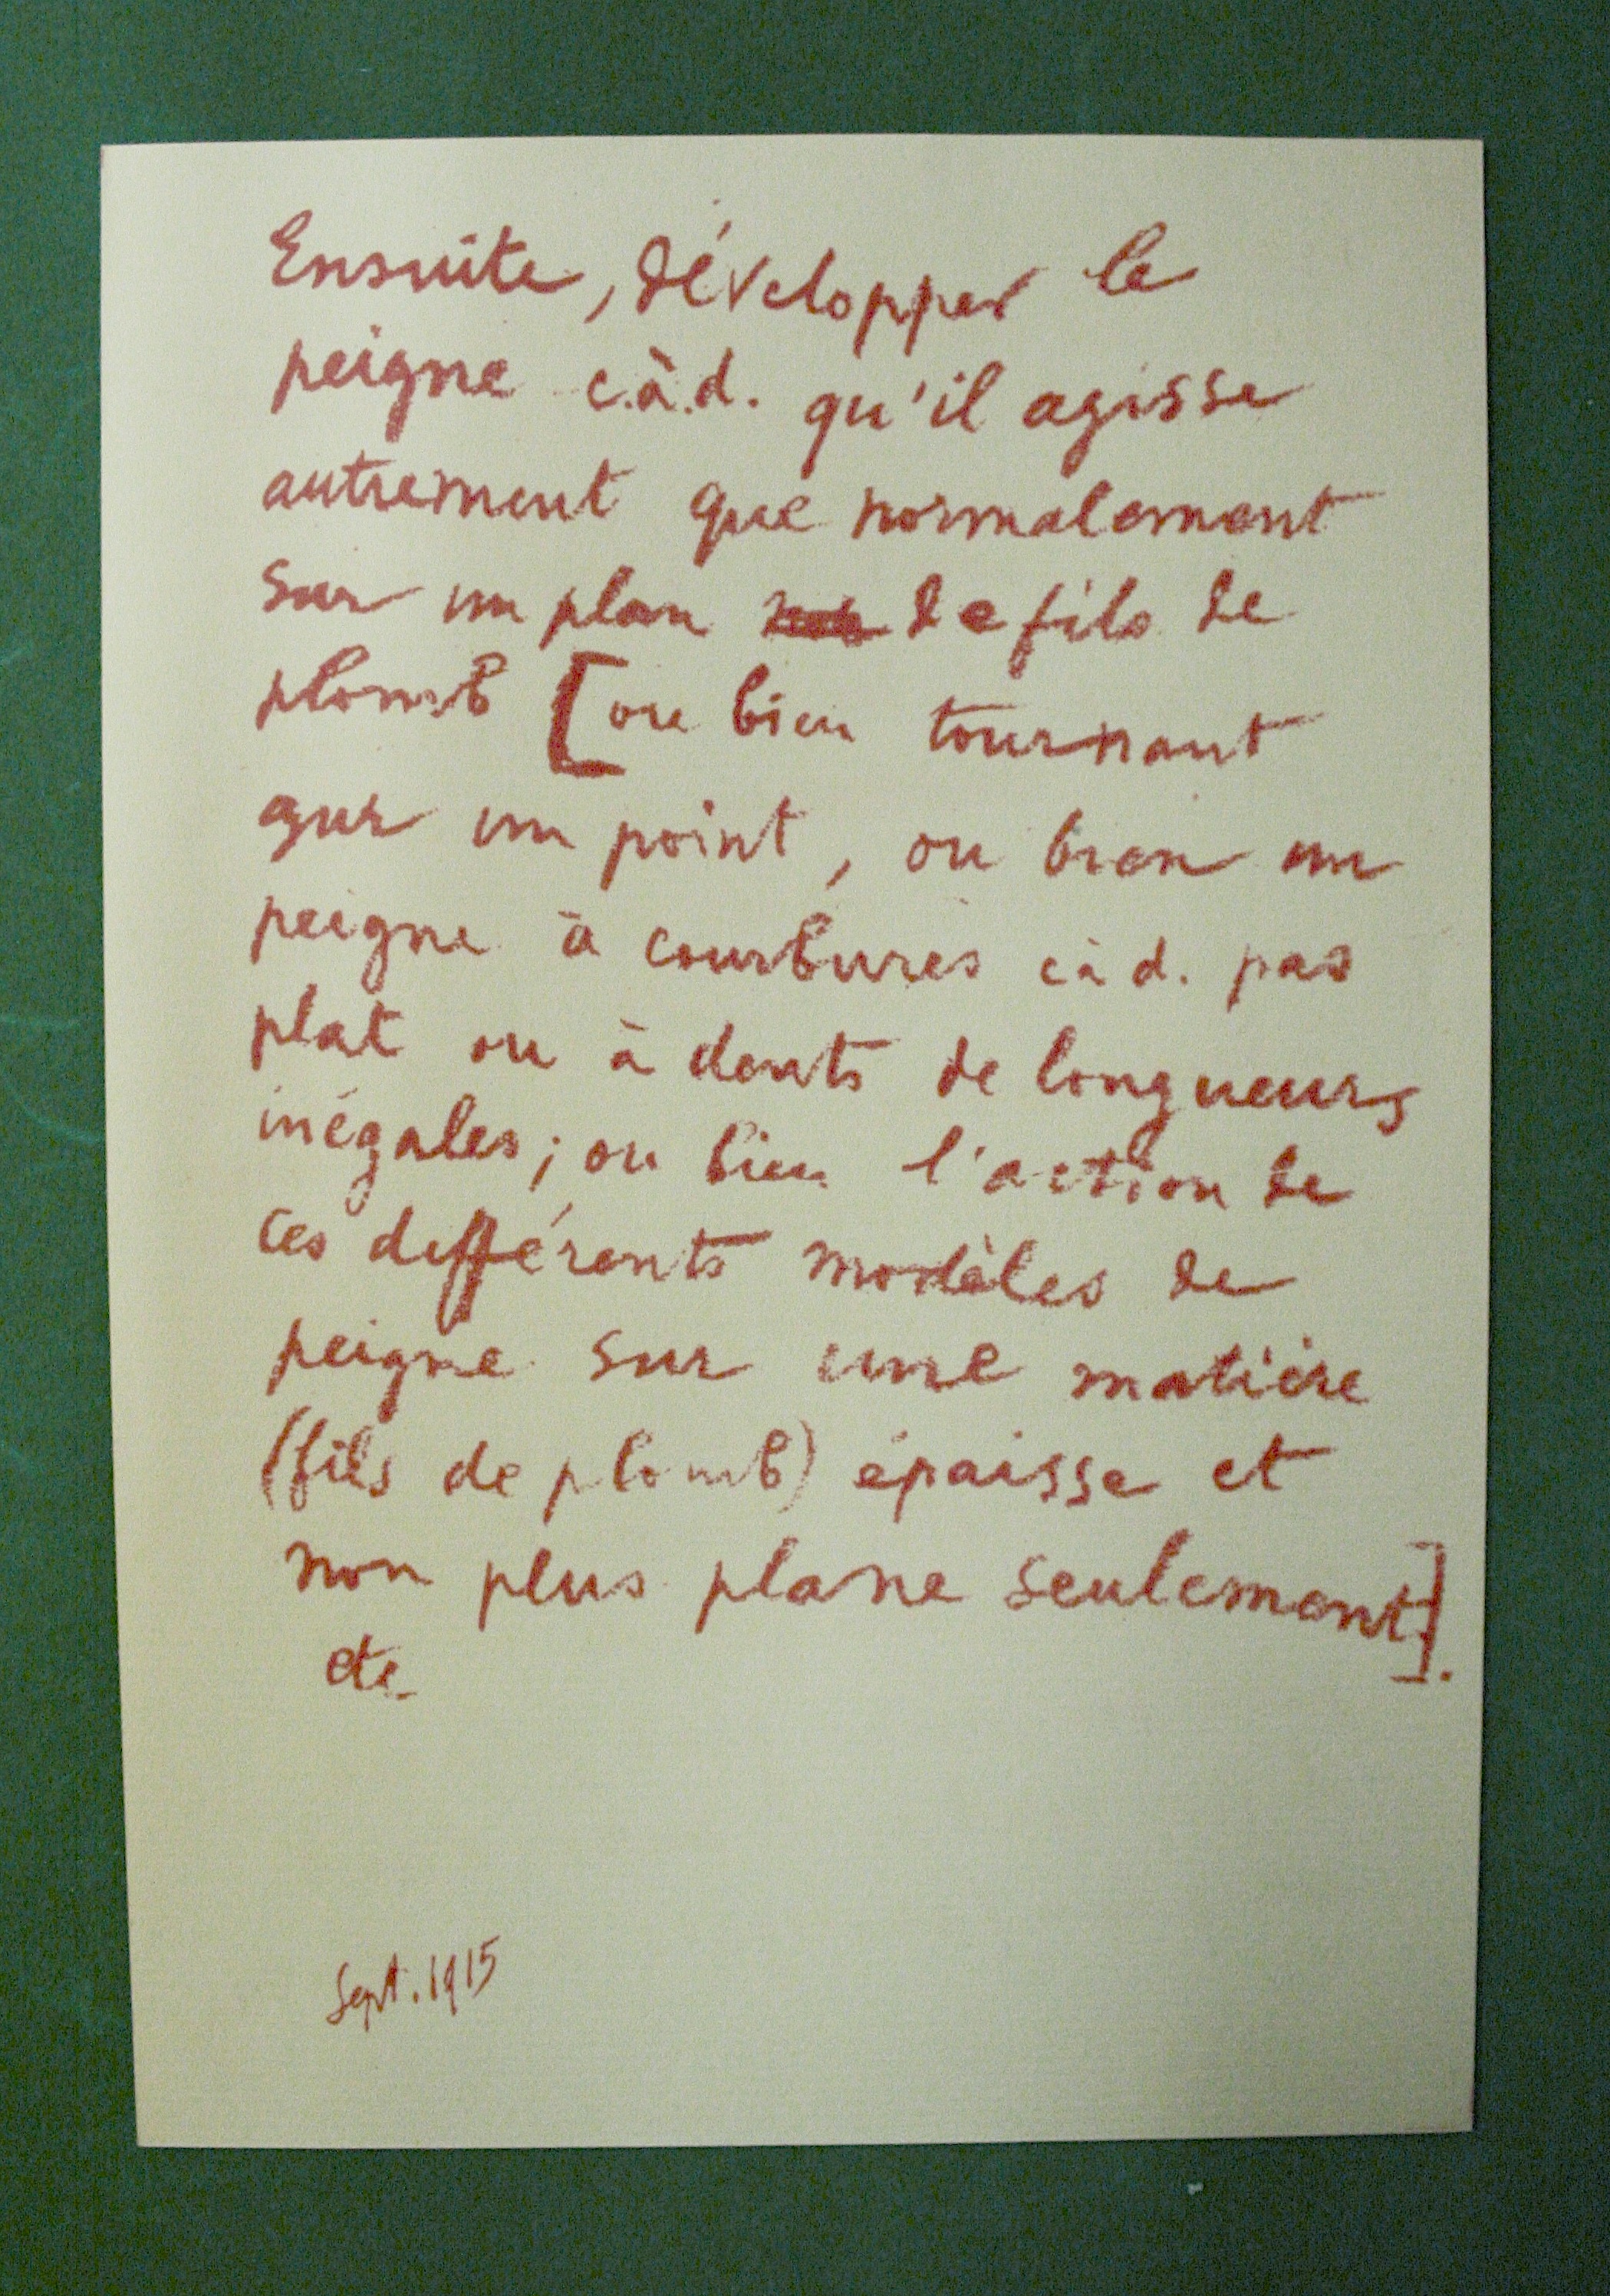 Ensuite, développer le
peigne c.à.d. qu'il agisse
autrement que normalement
sur un plan de fils de
plomb [ou bien tournant
sur un point, ou bien un
peigne à courbures càd. pas
plat ou à dents de longueurs
inégales; ou bien l'action de
ces différents modèles de
peigne sur une matière
(fils de plomb) épaisse et
non plus plane seulement].
etc
Sept. 1915